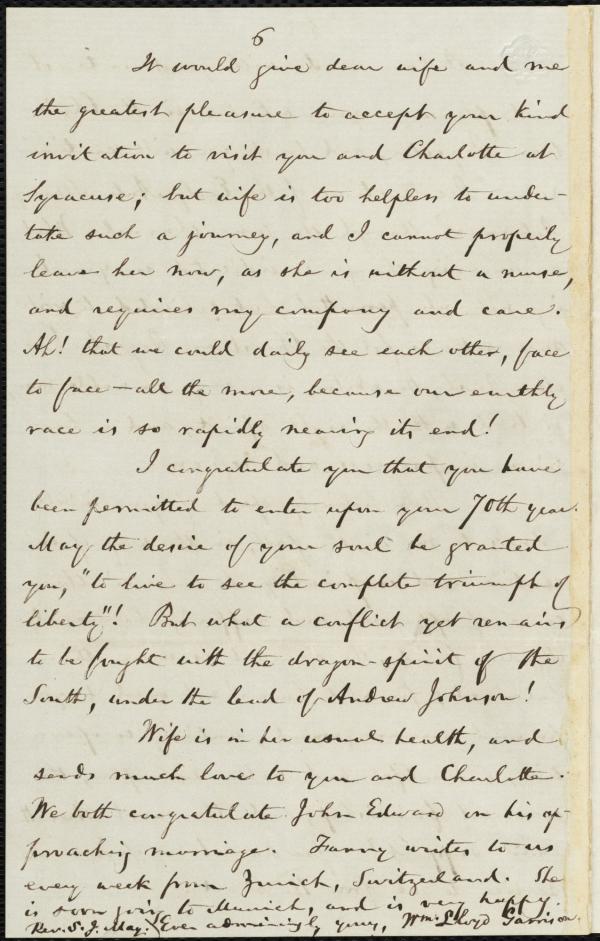 6
It would give dear wife and me
the greatest pleasure to accept your kind
invitation to visit you and Charlotte at
Syracuse; but wife is too helpless to under-
take such a journey, and I cannot properly
leave her now, as she is without a nurse,
and requires my company and care.
Ah! that we could daily see each other, face
to face—all the more, because our earthly
race is so rapidly nearing its end!
I congratulate you that you have
been permitted to enter upon your 70th year.
May the desire of your soul be granted
you, "to live to see the complete triumph of
liberty"! But what a conflict yet remains
to be fought with the dragon-spirit of the
South, under the lead of Andrew Johnson!
Wife is in her usual health, and
sends much love to you and Charlotte.
We both congratulate John Edward on his ap-
proaching marriage. Fanny writes to us
every week from Zurich, Switzerland. She
is soon going to Munich, and is very happy.
Rev. S. J. May. Ever admiringly yours, Wm. Lloyd Garrison.